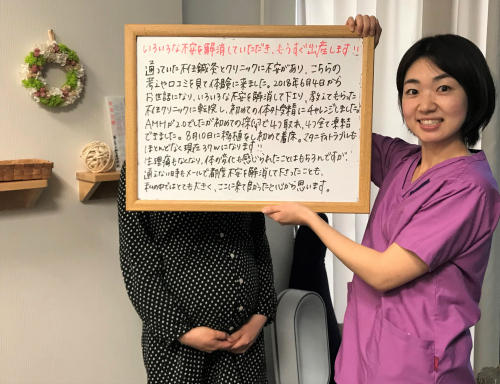 いろいろな不安を解消していただき、もうすぐ出産します!!
通っていた不妊鍼灸とクリニックに不安があり、こちらの
考えや口コミを見て体験に来ました。2018年6月4日から
お世話になり、いろいろな不安を解消して下さり、教えてもらった
不妊クリニックに転院し、初めての体外受精にチャレンジしました。
AMHが2.0でしたが初めての採卵で4つ取れ、4つ全て凍結
できました。8月10日に移植をし初めて着床。マタニティトラブルも
ほとんどなく現在39Wになります!!
生理痛もなくなり、体の変化も感じられたこともちろんですが、
通えない日もメールで都度不安を解消して下さったことも、
私の中ではとても大きく、ここに来て良かったと心から思います。